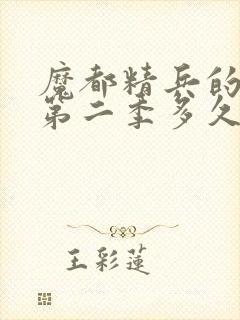 魔都精兵的
第二季多久
王彩莲